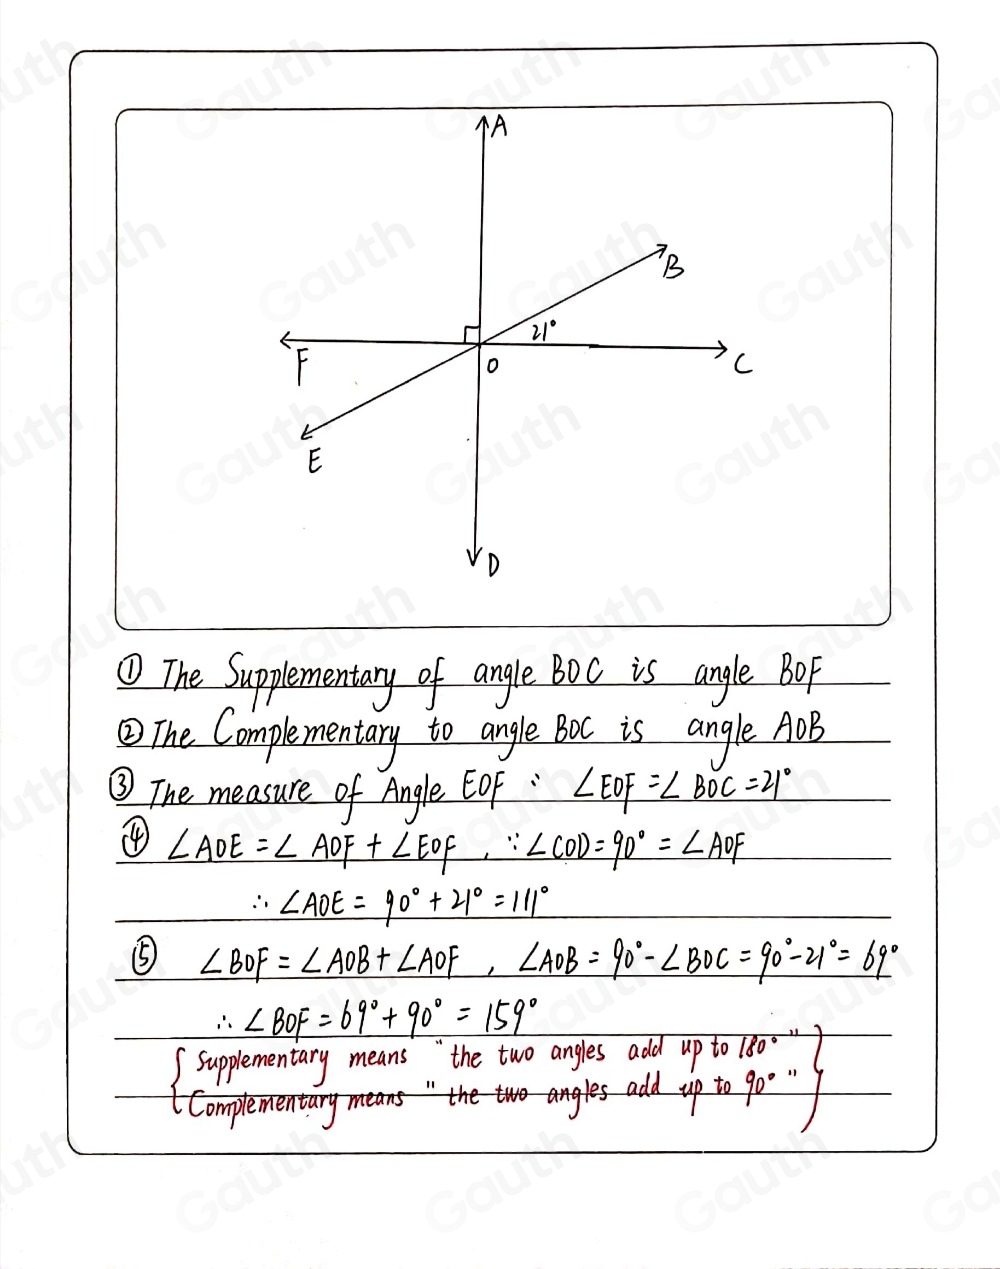 A
B
21°
F
O
C
E
D
① The Supplementary of angle BOC is angle BOF
② The Complementary to angle BOC is angle AOB
③ The measure of Angle EOF : ∠EOF = ∠BOC = 21°
④ ∠AOE = ∠AOF + ∠EOF , ∵ ∠COD = 90° = ∠AOF
∴ ∠AOE = 90° + 21° = 111°
⑤ ∠BOF = ∠AOB + ∠AOF , ∠AOB = 90° - ∠BOC = 90° - 21° = 69°
∴ ∠BOF = 69° + 90° = 159°
{ Supplementary means "the two angles add up to 180°" }
Complementary means "the two angles add up to 90°"
Gauth